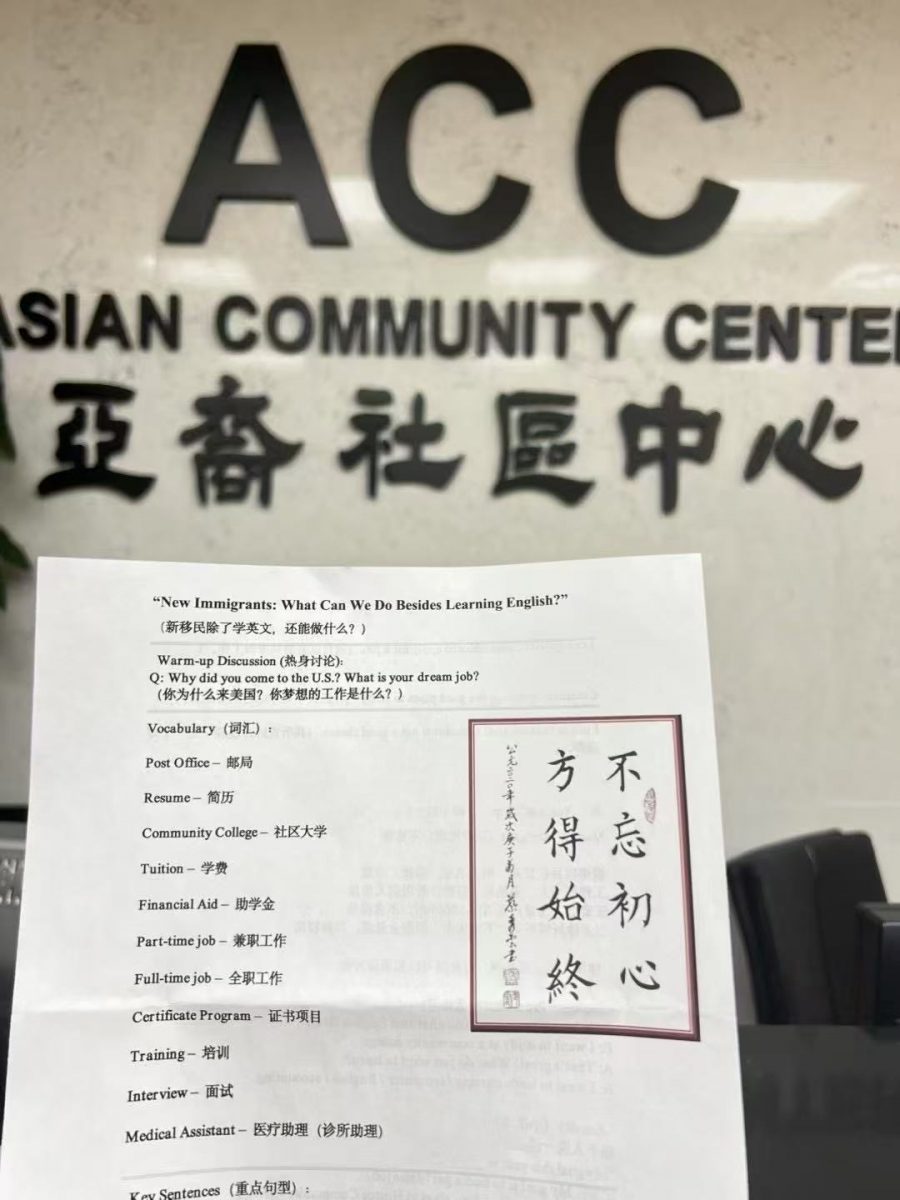 ACC
ASIAN COMMUNITY CENTER
亞裔社區中心
“New Immigrants: What Can We Do Besides Learning English?”
（新移民除了学英文，还能做什么？）
Warm-up Discussion (热身讨论):
Q: Why did you come to the U.S.? What is your dream job?
（你为什么来美国？你梦想的工作是什么？）
Vocabulary（词汇）:
Post Office – 邮局
Resume – 简历
Community College – 社区大学
Tuition – 学费
Financial Aid – 助学金
Part-time job – 兼职工作
Full-time job – 全职工作
Certificate Program – 证书项目
Training – 培训
Interview – 面试
Medical Assistant – 医疗助理（诊所助理）
Key Sentences（重点句型）:
不忘初心
方得始終